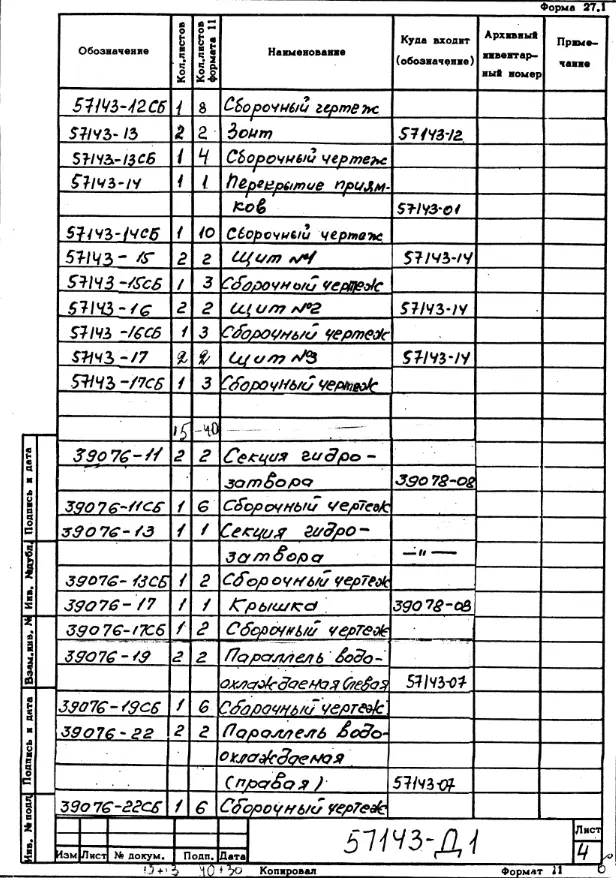 Форма 27.1
Обозначение Кол.листов Кол.листов формата 11 Наименование Куда входит (обозначение) Архивный инвентарный номер Примечание
57143-12СБ 1 8 Сборочный чертеж
57143-13 2 2 Зонт 57143-12
57143-13СБ 1 4 Сборочный чертеж
57143-14 1 1 Перекрытие приям-
ков 57143-01
57143-14СБ 1 10 Сборочный чертеж
57143-15 2 2 Щит №1 57143-14
57143-15СБ 1 3 Сборочный чертеж
57143-16 2 2 Щит №2 57143-14
57143-16СБ 1 3 Сборочный чертеж
57143-17 2 2 Щит №3 57143-14
57143-17СБ 1 3 Сборочный чертеж
15 -40
39076-11 2 2 Секция гидро-
затвора 39078-08
39076-11СБ 1 6 Сборочный чертеж
39076-13 1 1 Секция гидро-
затвора —"—
39076-13СБ 1 2 Сборочный чертеж
39076-17 1 1 Крышка 39078-08
39076-17СБ 1 2 Сборочный чертеж
39076-19 2 2 Параллель водо-
охлаждаемая (левая 57143-07
39076-19СБ 1 6 Сборочный чертеж
39076-22 2 2 Параллель водо-
охлаждаемая
(правая) 57143-07
39076-22СБ 1 6 Сборочный чертеж
Подпись и дата
Инв. №дубл.
Взам.инв. №
Подпись и дата
Инв. № подл.
57143-Д1
Лист
4
Изм Лист № докум. Подп. Дата
15+13 40+30 Копировал Формат 11